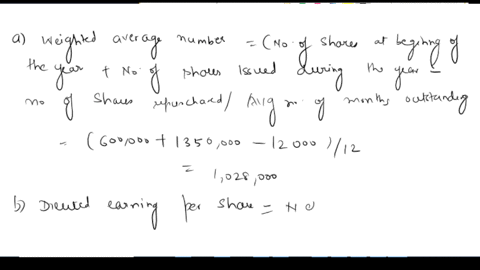 a) Weighted average number = (No. of shares at begining of
the year + No. of shares Issued during the year -
no of Shares repurchased / Avg no. of months outstanding
= (600,000 + 1350,000 - 12000) / 12
= 1,028,000
b) Diluted earning per share = N